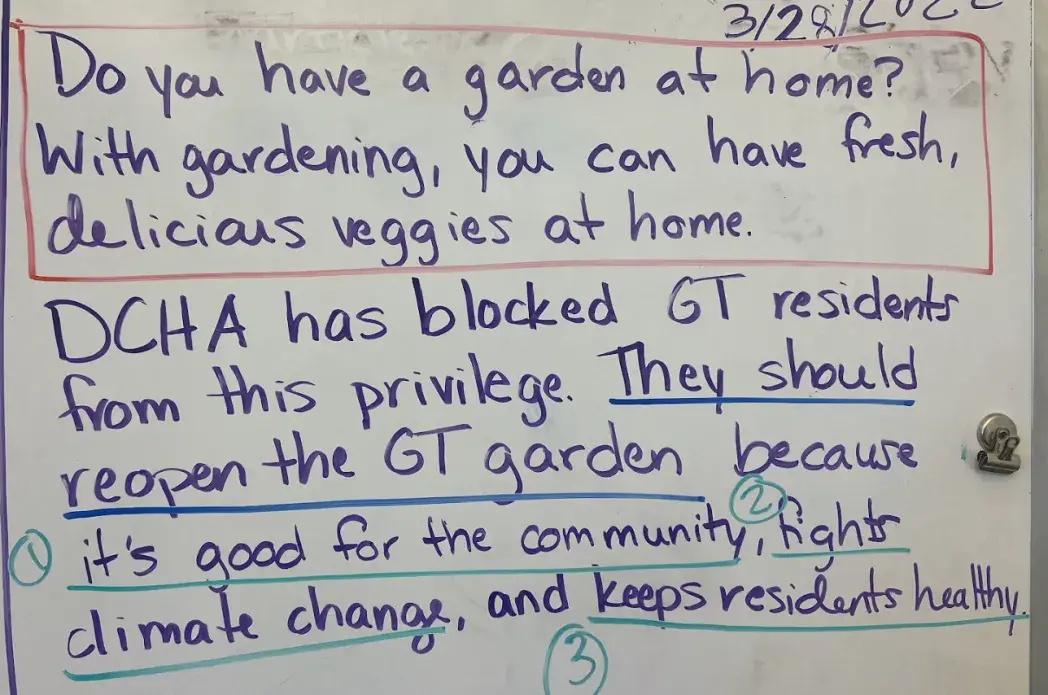 3/28/2022
Do you have a garden at home?
With gardening, you can have fresh,
delicious veggies at home.
DCHA has blocked GT residents
from this privilege. They should
reopen the GT garden because
2
1 it's good for the community, fights
climate change, and keeps residents healthy.
3